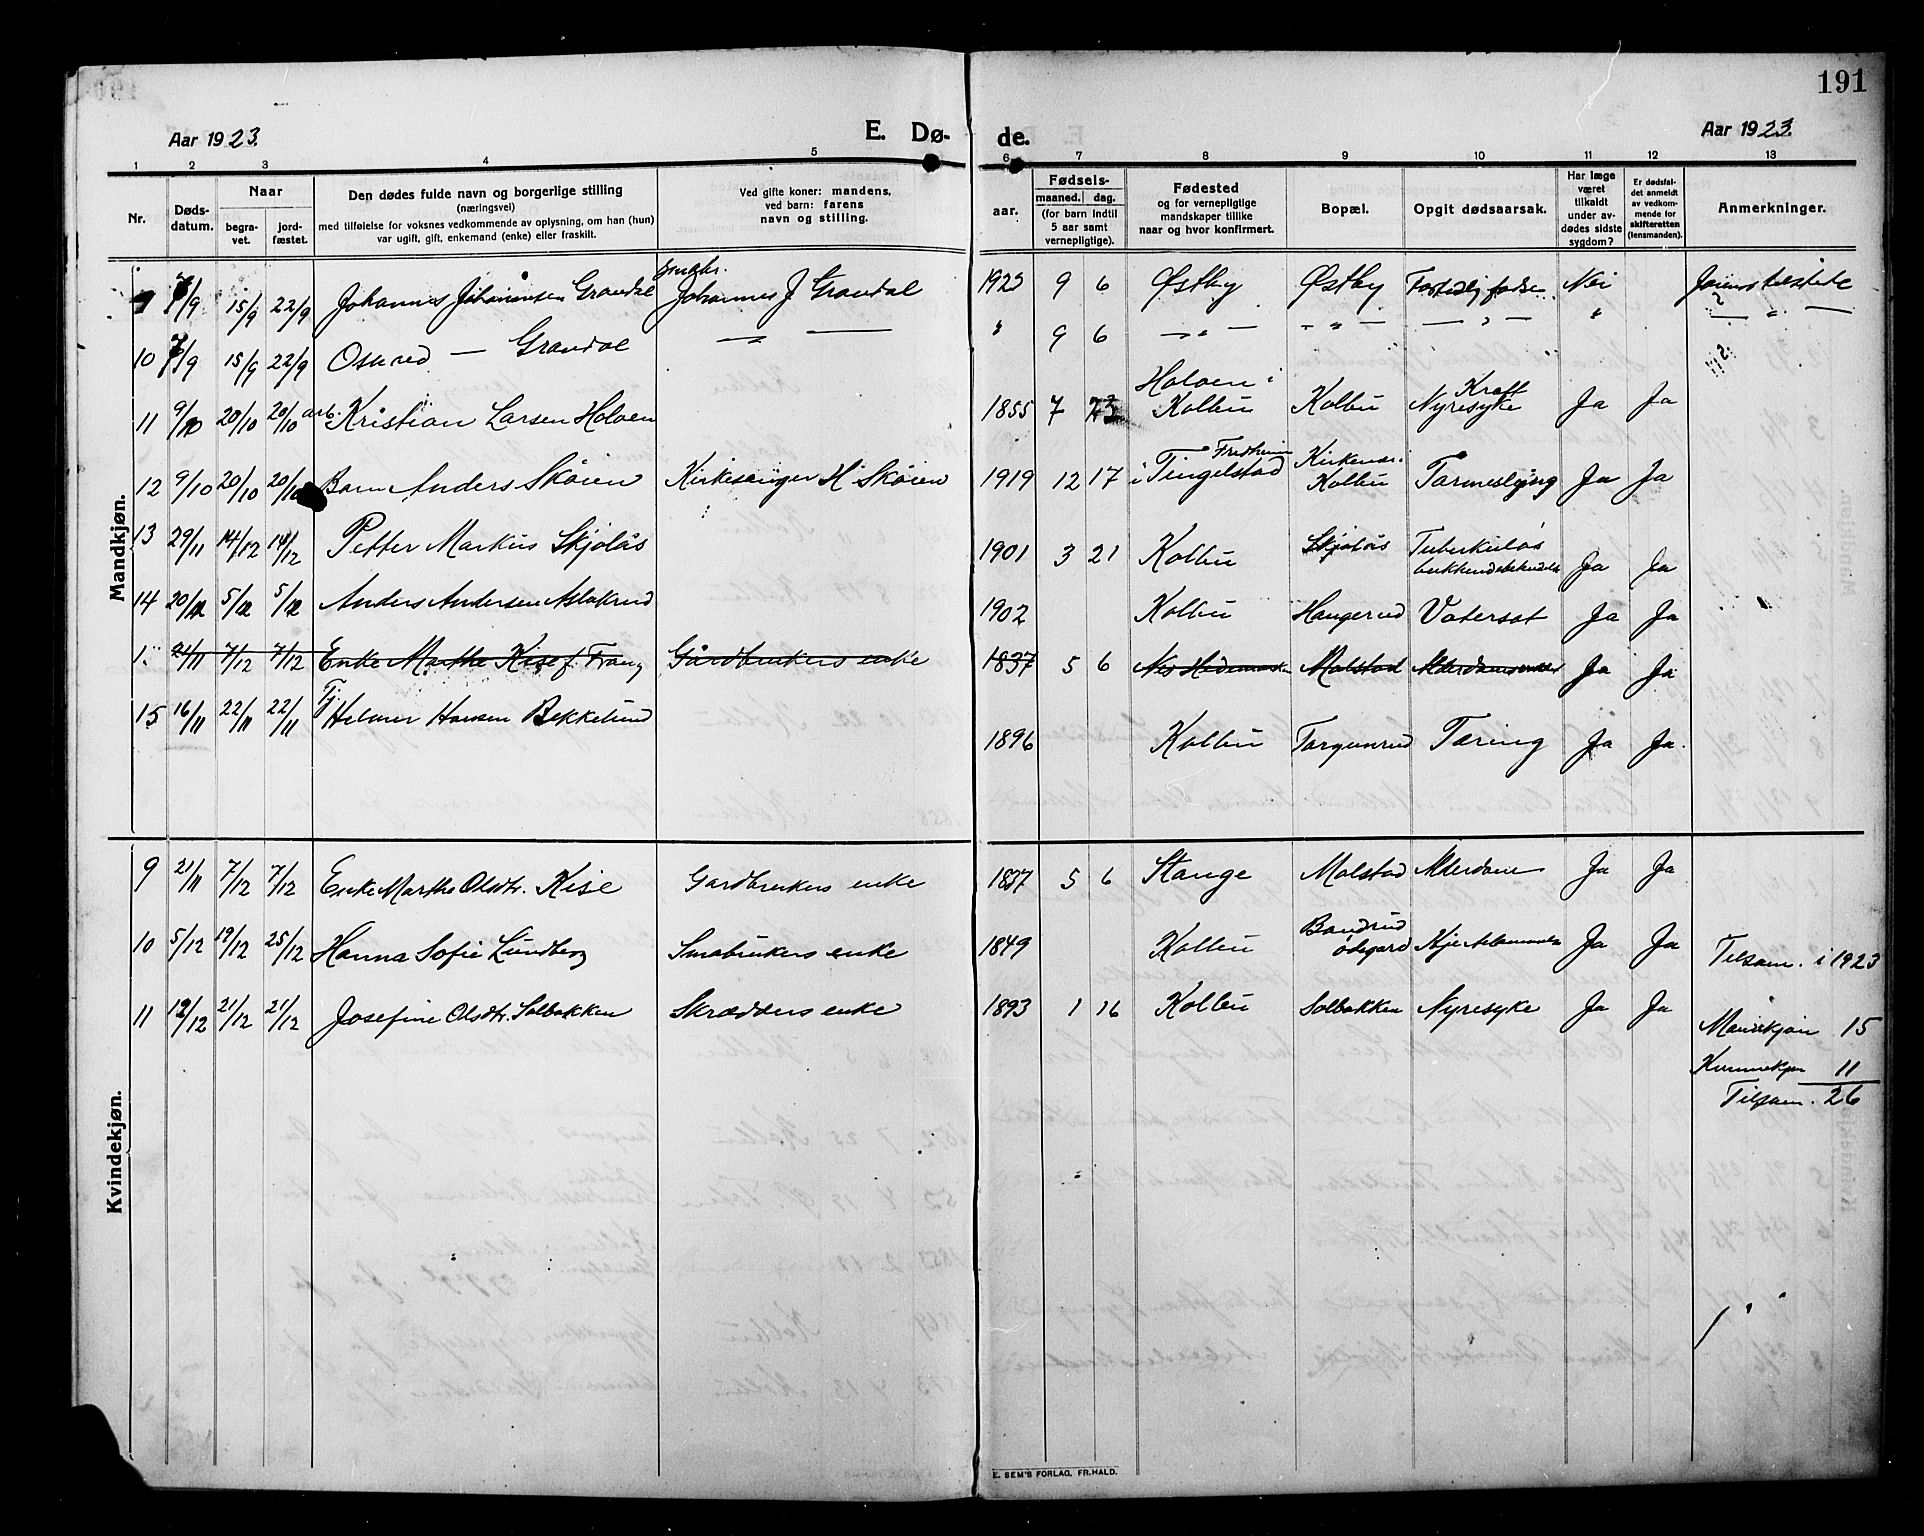 191
Aar 1923.
E. Dø-
de.
Aar 1923.
1 2 3 4 5 6 7 8 9 10 11 12 13
Nr.
Døds-
datum.
Naar
begra-
vet.
jord-
fæstet.
Den dødes fulde navn og borgerlige stilling
(næringsvei)
med tilføielse for voksnes vedkommende av oplysning, om han (hun)
var ugift, gift, enkemand (enke) eller fraskilt.
Ved gifte koner: mandens,
ved barn: farens
navn og stilling.
aar.
Fødsels-
maaned. dag.
(for barn indtil
5 aar samt
vernepligtige).
Fødested
og for vernepligtige
mandskaper tillike
naar og hvor konfirmert.
Bopæl.
Opgit dødsaarsak.
Har læge
været
tilkaldt
under av-
dødes sidste
sygdom?
Er dødsfal-
det anmeldt
av vedkom-
mende for
skifteretten
(lensmanden).
Anmerkninger.
Mandkjøn.
9 7/9 15/9 22/9 Johannes Johannesen Grandal Johannes J Grandal 1923 9 6 Østby Østby Fortidlig fødse Nei
10 7/9 15/9 22/9 — Grandal — „ — „ 9 6 — „ — — „ — — „ — „ — „ —
11 9/10 20/10 20/10 arb. Kristian Larsen Holoen 1855 7 23 Holoen i Kolbu Kolbu Kreft Nyresyke Ja Ja
12 9/10 20/10 20/10 Barn Anders Skøien Kirkesanger H Skøien 1919 12 17 Fredheim i Tingelstad Kolbu Tarmeslyng Ja Ja
13 29/11 14/12 14/12 Petter Markus Skjolås 1901 3 21 Kolbu Skjolås Tuberkuløs Ja Ja
14 20/11 5/12 5/12 Anders Andersen Aslakrud 1902 Kolbu Haugerud Vatersot Ja Ja
1. 21/11 7/12 7/12 Enke Marthe Kise f. Frang Gårdbrukers enke 1837 5 6 Nes Hedemarken Malstad Alderdomssvakhet Ja Ja
15 16/11 22/11 22/11 Tj Helmer Hansen Bekkelund 1896 Kolbu Torgunrud Tæring Ja Ja.
Kvindekjøn.
9 21/11 7/12 7/12 Enke Marthe Olsdtr. Kise Gardbrukers enke 1837 5 6 Stange Malstad Alderdom Ja Ja
10 5/12 19/12 25/12 Hanna Sofie Lundberg Småbrukers enke 1849 Kolbu Bondrud ødegard Ja Ja
11 12/12 21/12 21/12 Josefine Olsdtr. Solbakken Skrædders enke 1893 1 16 Kolbu Solbakken Nyresyke Ja Ja
Tilsam. i 1923
Mandkjøn 15
Kvinnekjøn 11
Tilsam. 26
E. SEM'S FORLAG, FR.HALD.